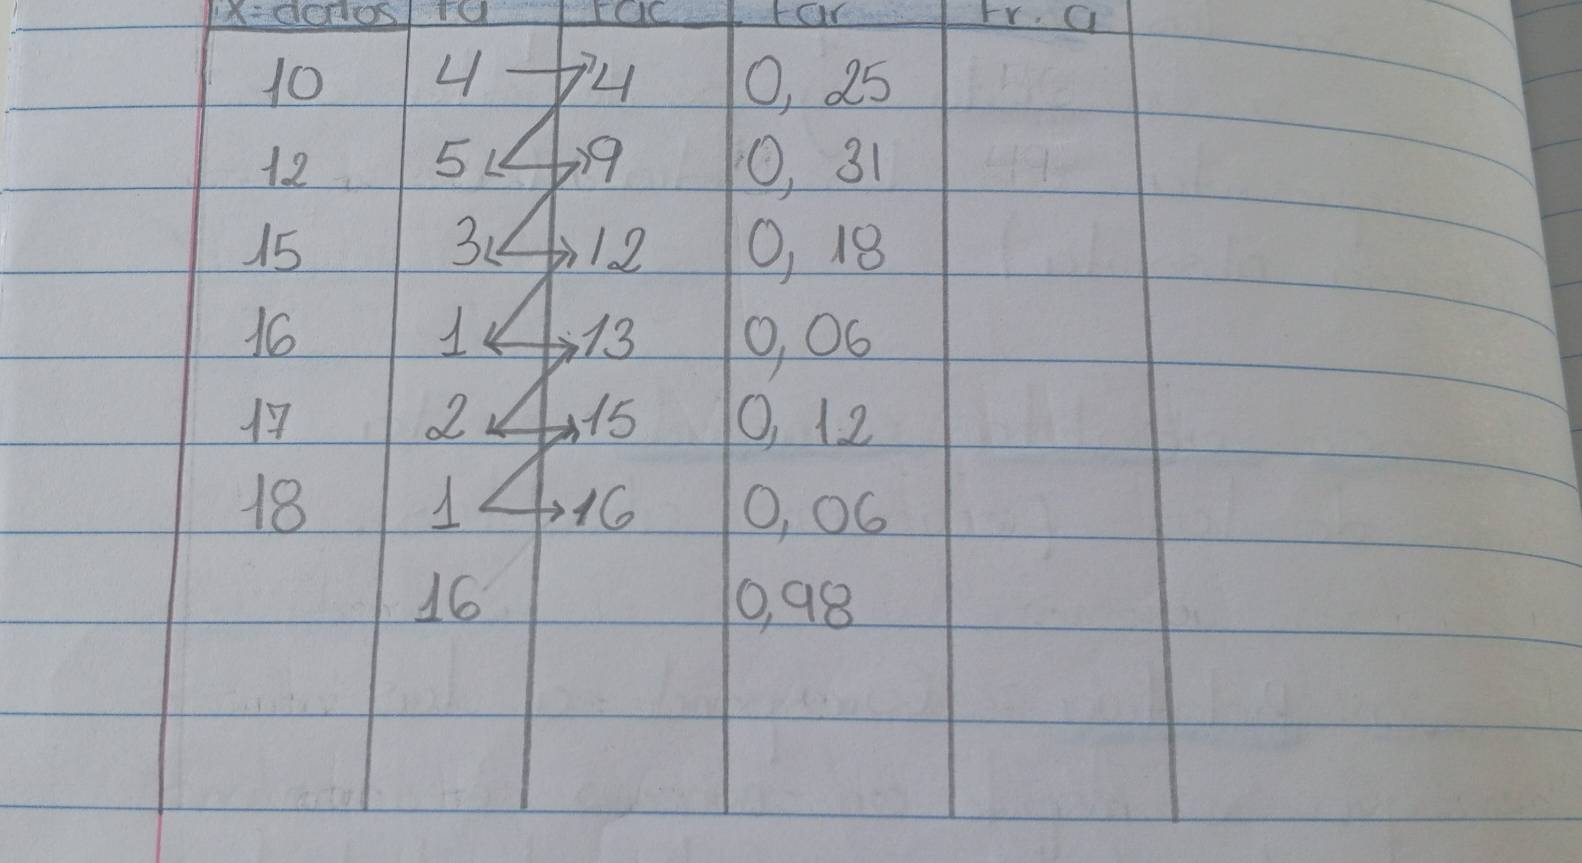 x=datos fa fac far fr. a
10 4 4 0, 25
12 5 9 0, 31
15 3 12 0, 18
16 1 13 0, 06
17 2 15 0, 12
18 1 16 0, 06
16 0,98